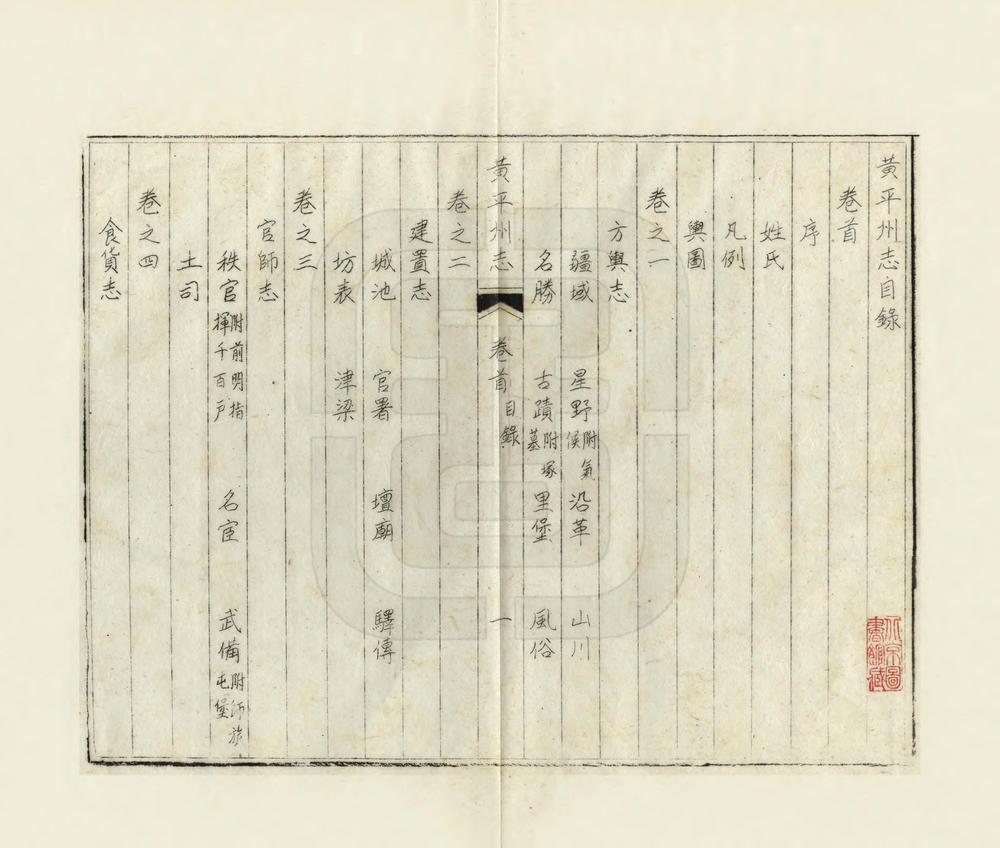 黃平州志目錄
卷首
序
姓氏
凡例
輿圖
卷之一
方輿志
疆域 星野附氣候 沿革 山川
名勝 古蹟附塚墓 里堡 風俗
黃平州志 卷首 目錄 一
卷之二
建置志
城池 官署 壇廟 驛傳
坊表 津梁
卷之三
官師志
秩官附前明指揮千百戶 名宦 武備附師旅屯堡
土司
卷之四
食貨志
北京圖書館藏